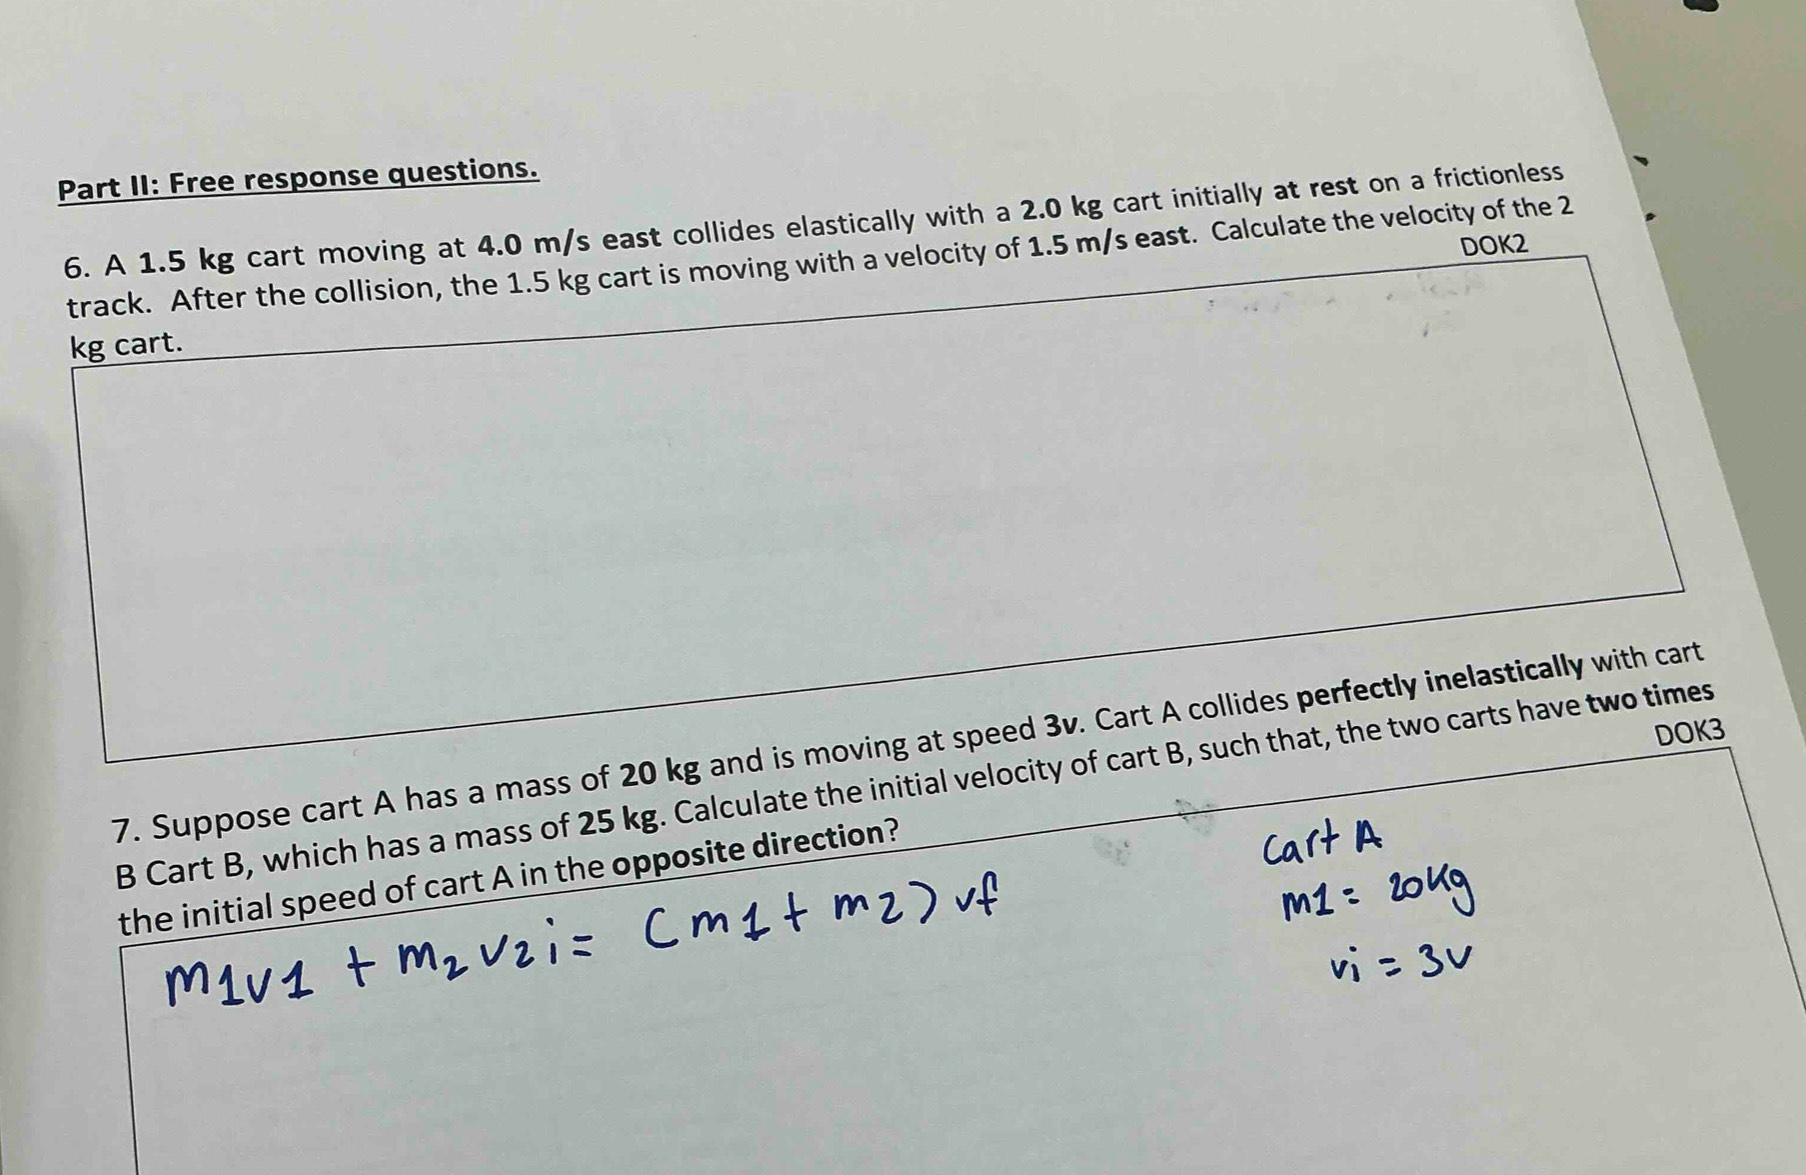 Part II: Free response questions.
6. A 1.5 kg cart moving at 4.0 m/s east collides elastically with a 2.0 kg cart initially at rest on a frictionless
track. After the collision, the 1.5 kg cart is moving with a velocity of 1.5 m/s east. Calculate the velocity of the 2
kg cart.
DOK2
7. Suppose cart A has a mass of 20 kg and is moving at speed 3v. Cart A collides perfectly inelastically with cart
B Cart B, which has a mass of 25 kg. Calculate the initial velocity of cart B, such that, the two carts have two times
the initial speed of cart A in the opposite direction?
DOK3
m1v1 + m2 v2i = (m1 + m2) vf
Cart A
m1 = 20kg
vi = 3v